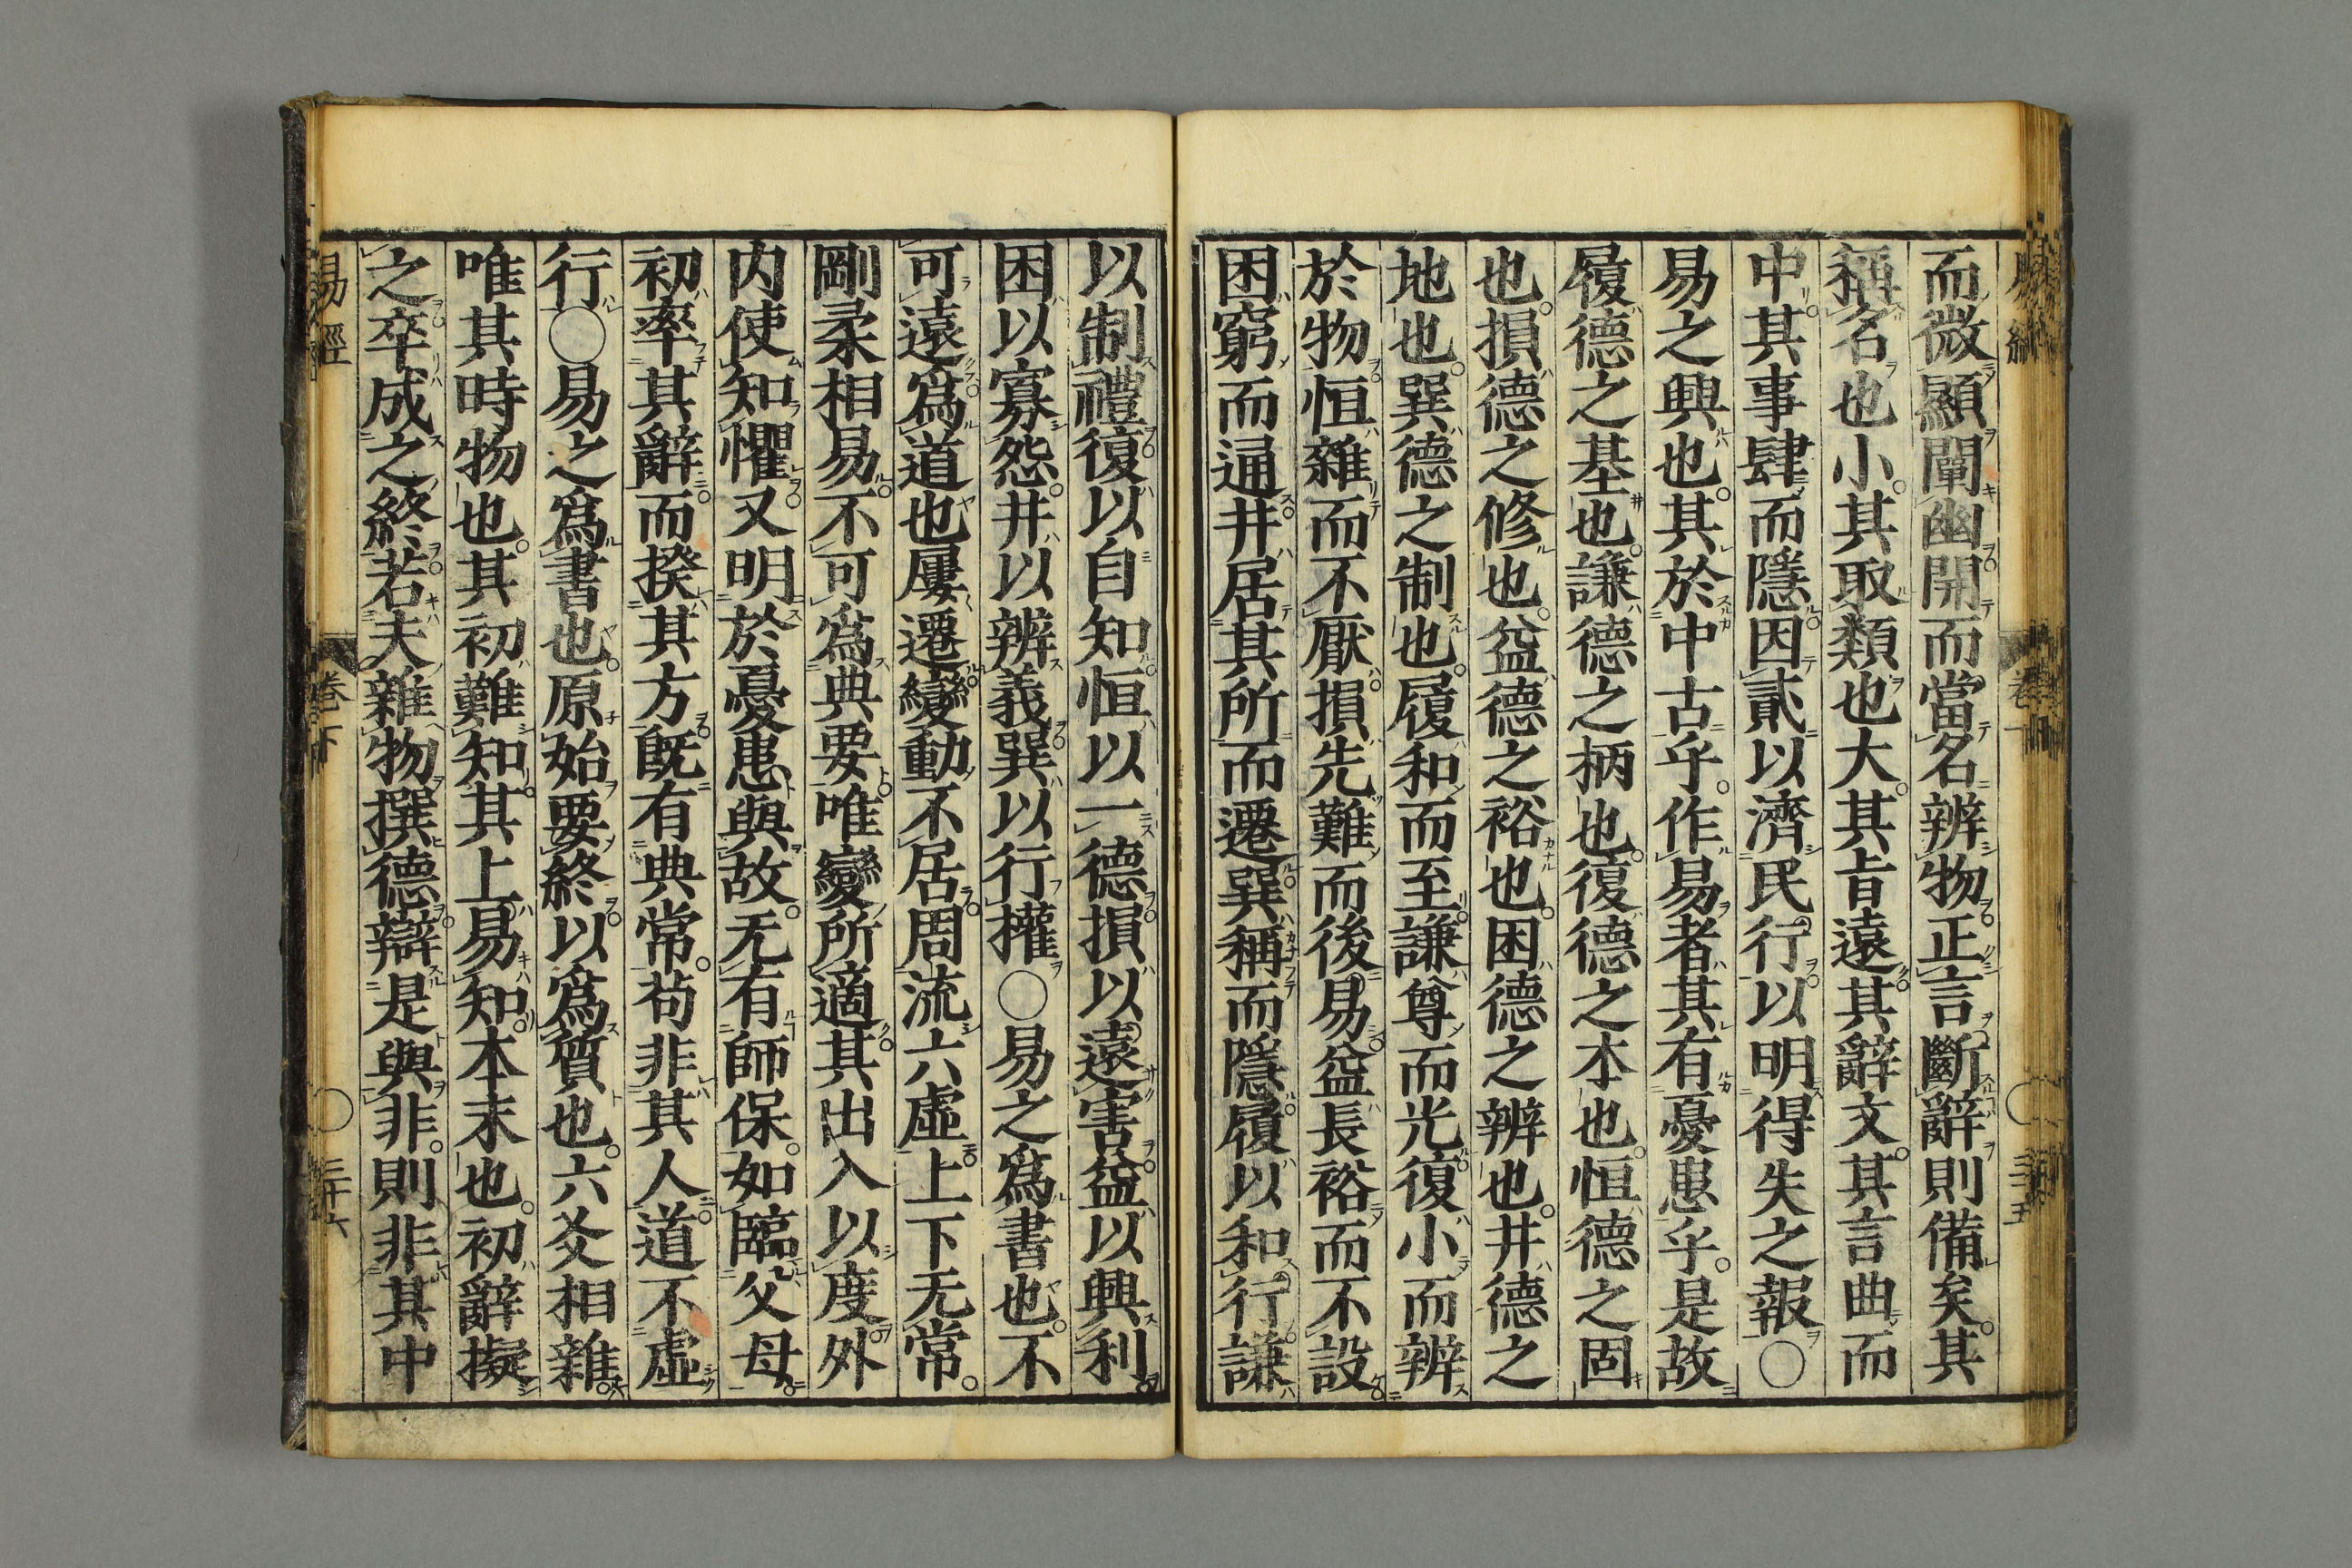 而微顯闡幽開而當名辨物正言斷辭則備矣其
稱名也小其取類也大其旨遠其辭文其言曲而
中其事肆而隱因貳以濟民行以明得失之報○
易之興也其於中古乎作易者其有憂患乎是故
履德之基也謙德之柄也復德之本也恒德之固
也損德之修也益德之裕也困德之辨也井德之
地也巽德之制也履和而至謙尊而光復小而辨
於物恒雜而不厭損先難而後易益長裕而不設
困窮而通井居其所而遷巽稱而隱履以和行謙
以制禮復以自知恒以一德損以遠害益以興利
困以寡怨井以辨義巽以行權○易之爲書也不
可遠爲道也屢遷變動不居周流六虛上下无常
剛柔相易不可爲典要唯變所適其出入以度外
内使知懼又明於憂患與故无有師保如臨父母
初率其辭而揆其方旣有典常苟非其人道不虛
行○易之爲書也原始要終以爲質也六爻相雜
唯其時物也其初難知其上易知本末也初辭擬
之卒成之終若夫雜物撰德辯是與非則非其中
易經 卷下 ○ 三十六